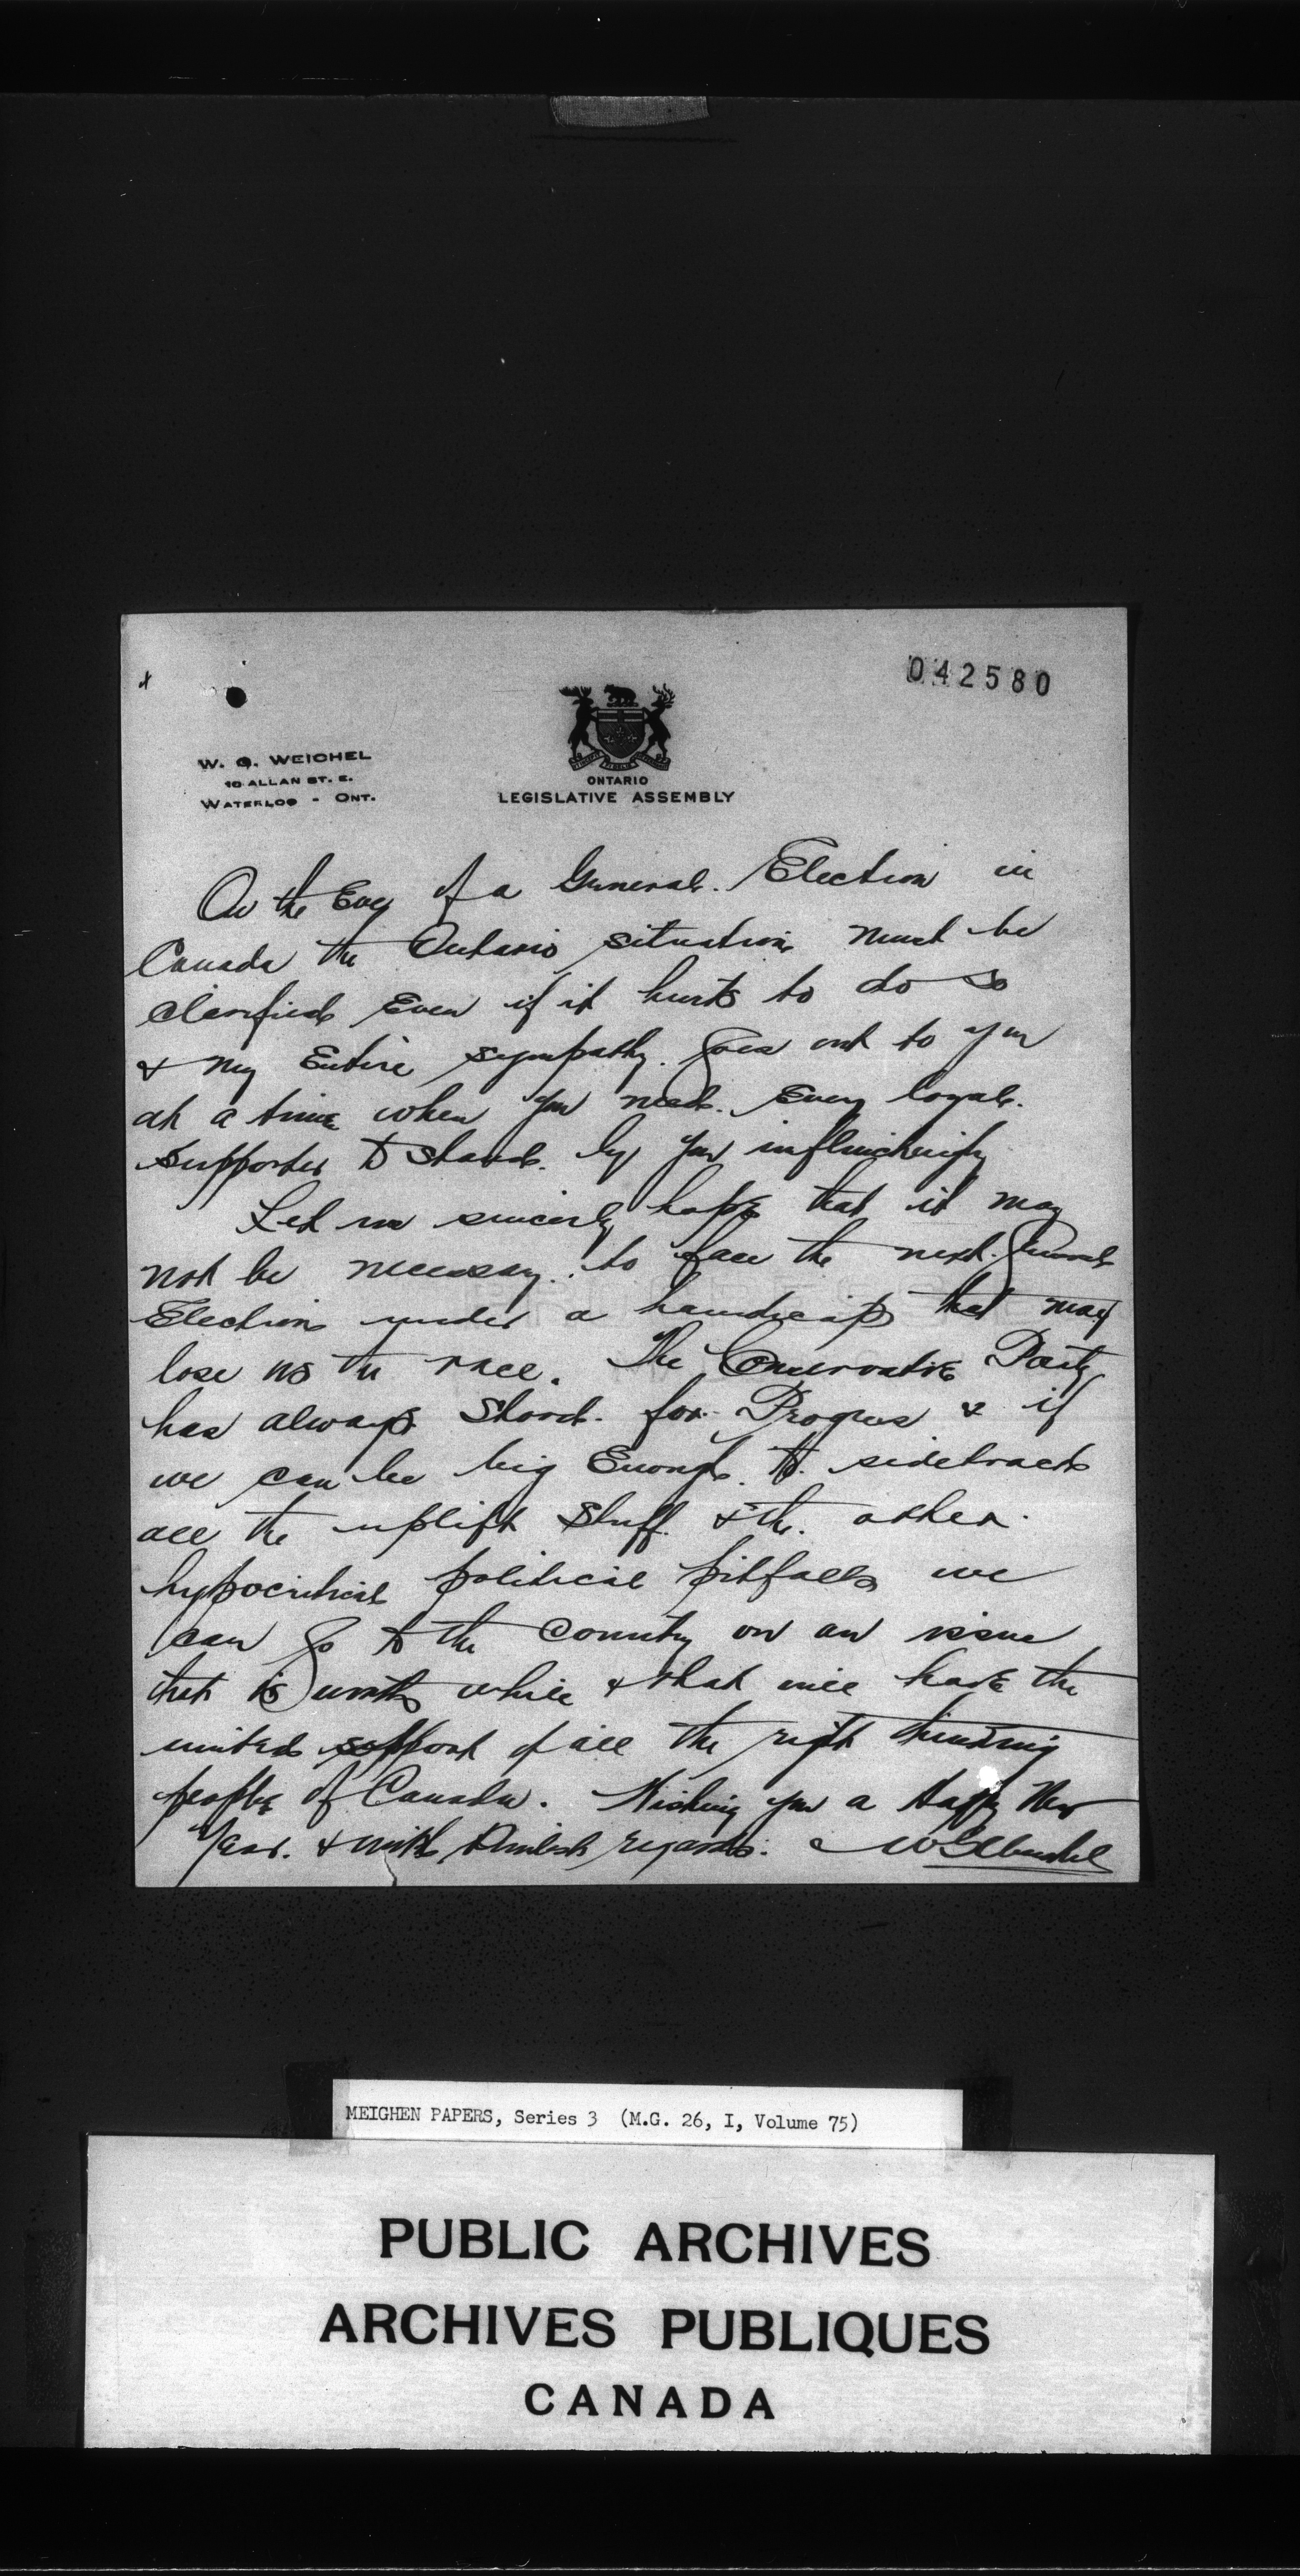 042580
W. G. WEICHEL
10 ALLAN ST. E.
WATERLOO - ONT.
ONTARIO
LEGISLATIVE ASSEMBLY
On the Eve of a General Election in
Canada the Ontario situation must be
clarified Even if it hurts to do so
& my Entire sympathy goes out to you
at a time when you need Every loyal
supporter to stand by you unflinchingly
Let us sincerely hope that it may
not be necessary to face the next General
Election under a handicap that may
lose us the race. The Conservative Party
has always stood for Progress & if
we can be big Enough to sidetrack
all the uplift stuff & the other
hypocritical political pitfalls we
can go to the Country on an issue
that is worth while & that will have the
united support of all the right thinking
people of Canada. Wishing you a Happy New
Year & with kindest regards. W G Weichel
MEIGHEN PAPERS, Series 3 (M.G. 26, I, Volume 75)
PUBLIC ARCHIVES
ARCHIVES PUBLIQUES
CANADA